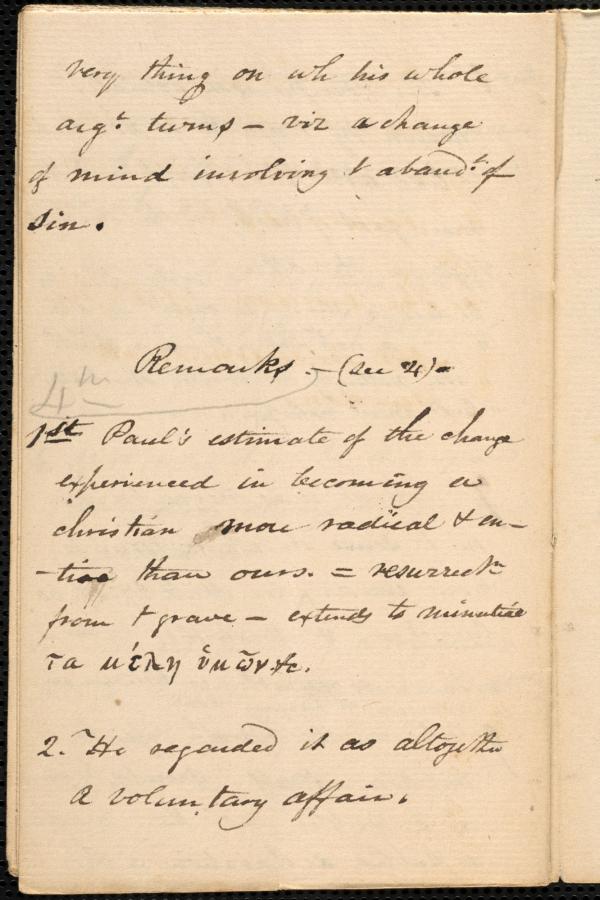 very thing on wh his whole
argt. turns – viz a change
of mind involving t abandt. of
sin.
Remarks – (see 24) –
4th
1st Paul's estimate of the change
experienced in becoming a
christian more radical & en-
-tire than ours. = resurrectn
from t grave – extends to minutiae
τα μέλη ὑμῶν &c.
2. He regarded it as altogether
a voluntary affair.